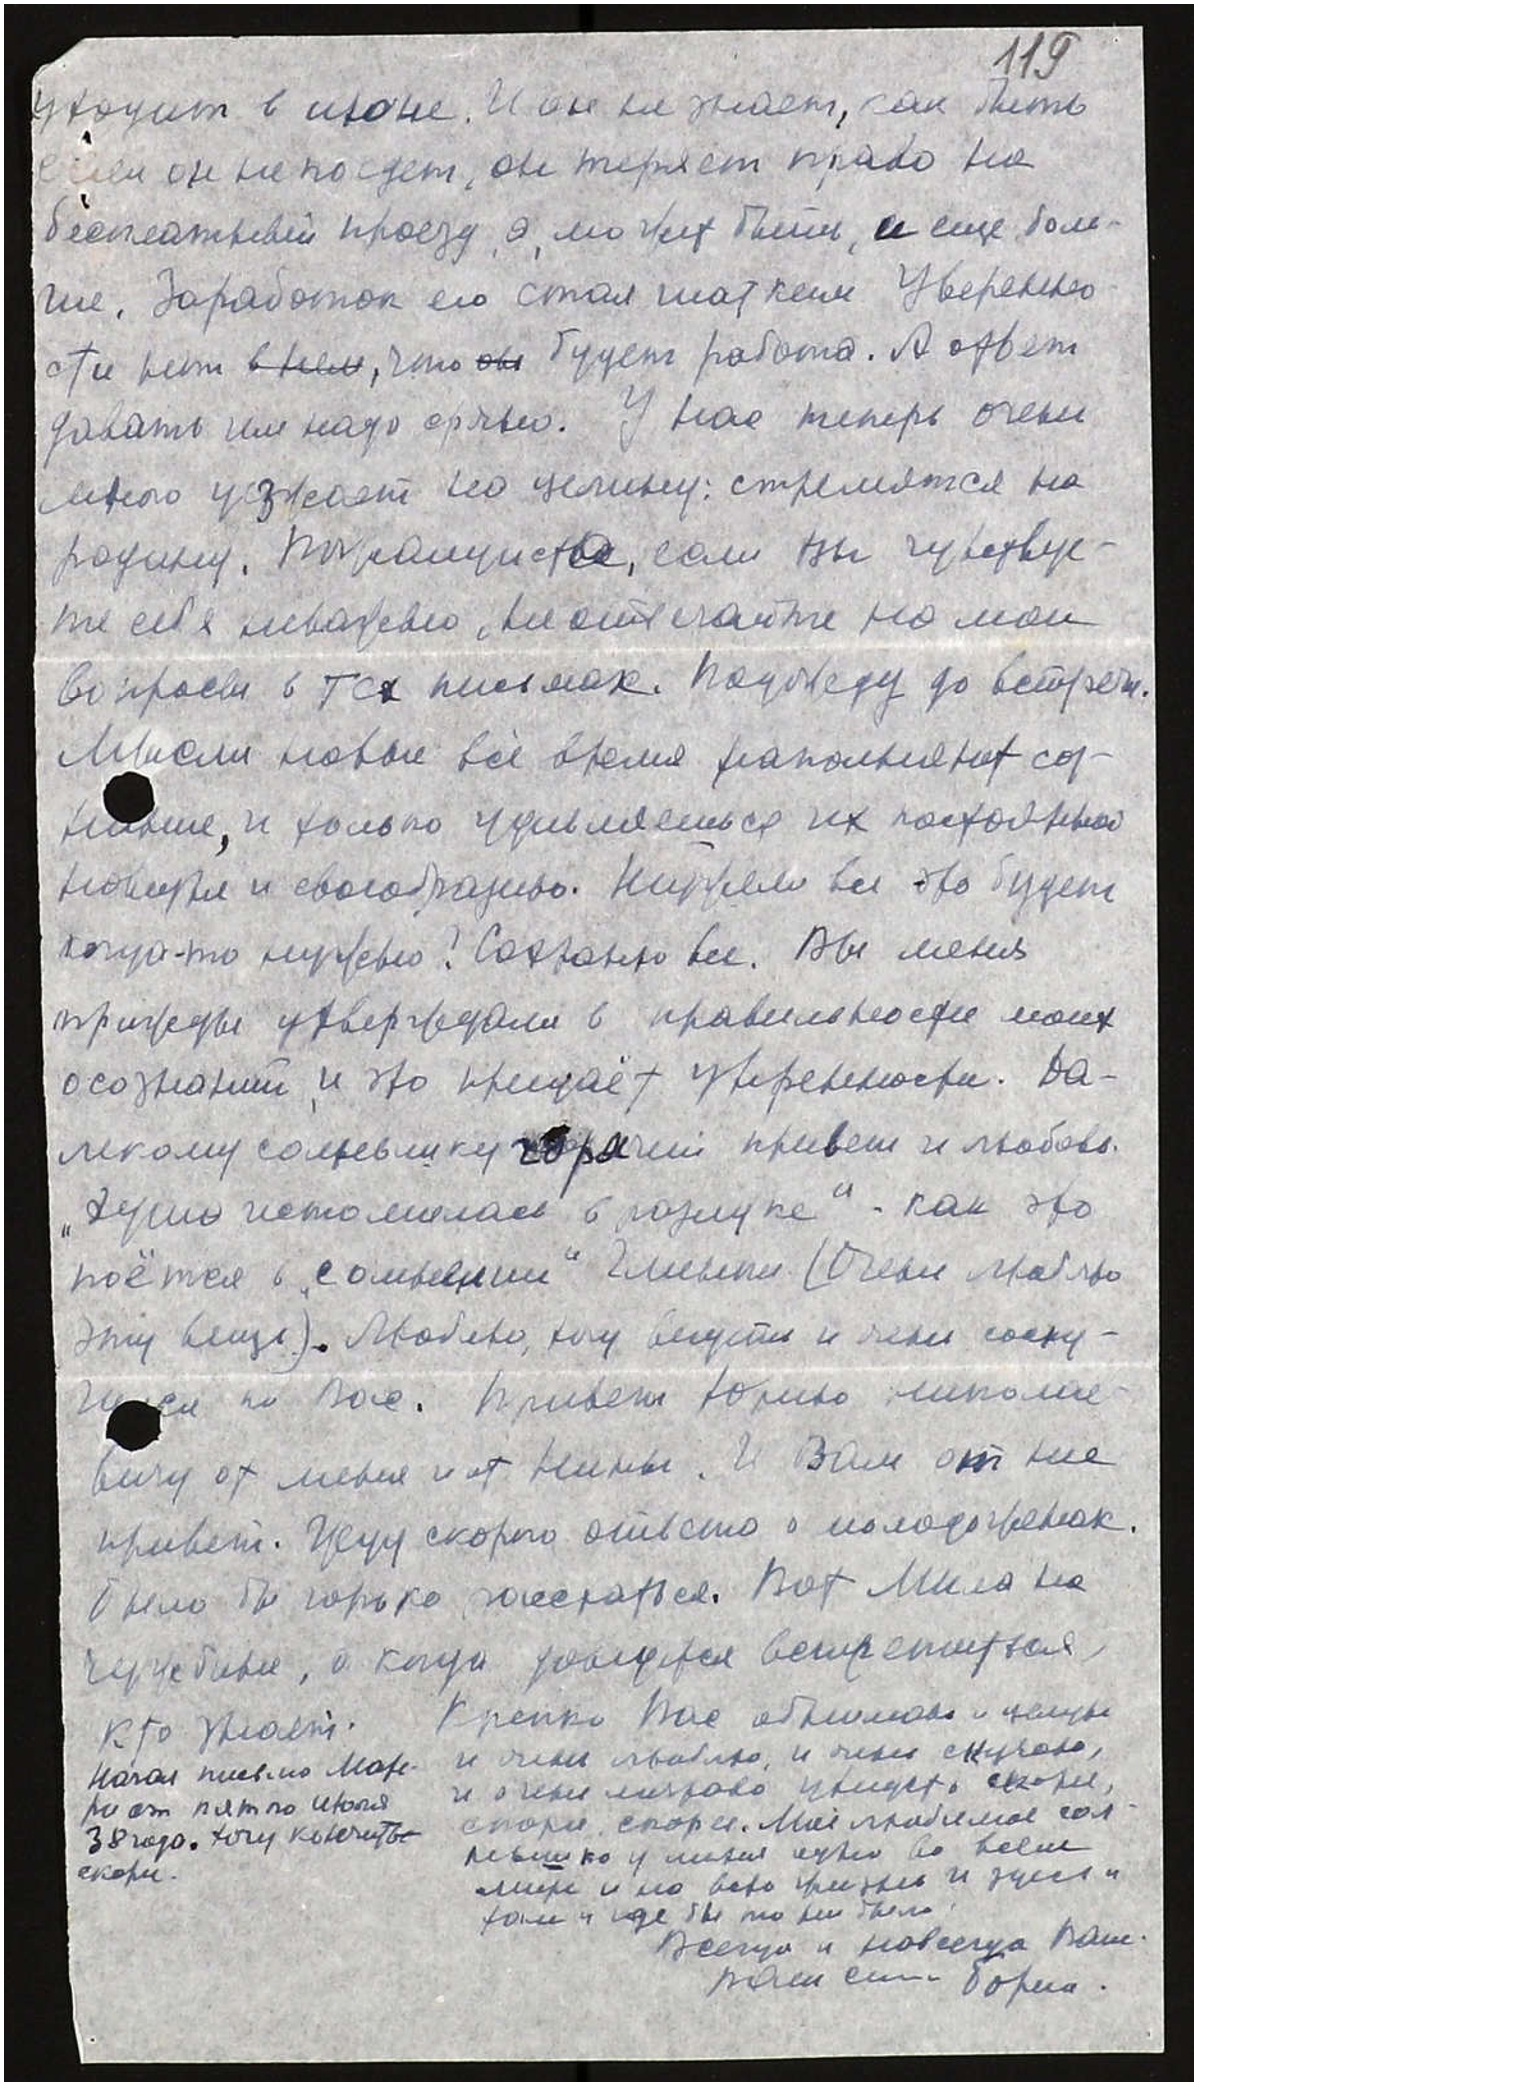 119
уходит в июне. И он не знает, как быть
если он не поедет, он теряет право на
бесплатный проезд, а, может быть, и еще боль-
ше. Заработок его стал шатким Уверенно-
сти нет в нем, что он будет работа. А ответ
давать им надо срочно. У нас теперь очень
много уезжает на целину: стремятся на
родину. Пожалуйста, если Вы чувствуе-
те себя неважно, не отвечайте на мои
вопросы в тех письмах. Подожду до встречи.
Мысли новые всё время наполняют соз-
нание, и только удивляешься их постоянной
новизне и своеобразию. Неужели все это будет
когда-то нужно? Сохраняю все. Вы меня
трижды утверждали в правильности моих
осознаний, и это придаёт уверенности. Да-
лекому солнышку горячий привет и любовь.
„Душа истомилась в разлуке" - как это
поётся в „Сомнении" Глинки (Очень люблю
эту вещь). Люблю, хочу видеть и очень соску-
чился по Вас. Привет Юрию Николае-
вичу от меня и от Нины. И Вам от нее
привет. Жду скорого ответа о молодоженах.
Было бы горько расстаться. Вот Мила на
чужбине, а когда доведется встретиться,
кто знает. Крепко Вас обнимаю и целую
и очень люблю, и очень скучаю,
и очень мечтаю увидеть скорее,
скорее, скорее. Мое любимое сол-
нышко у меня одно во всем
мире и на всю жизнь и здесь и
там и где бы то ни было.
Всегда и навсегда Ваш.
Ваш сын Борис.
Начал письмо
от пятого июля
38 года. Хочу кончить
скорее.